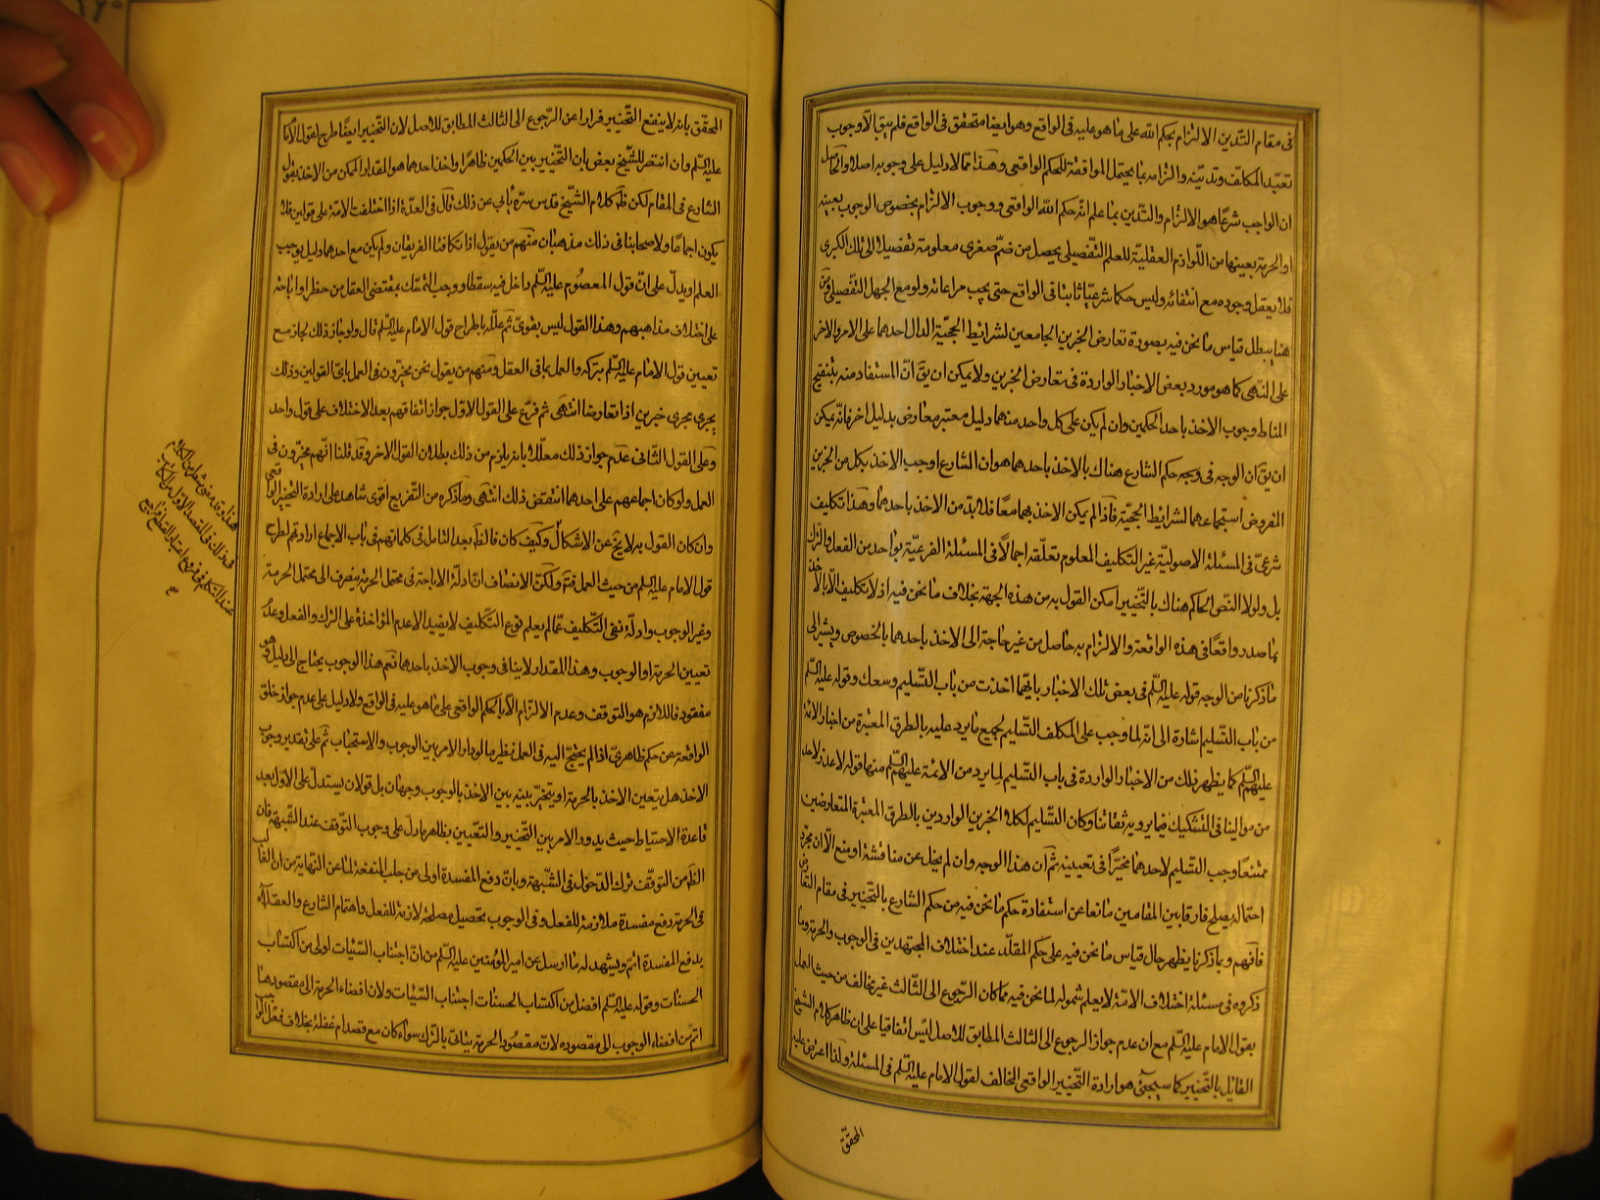 فى مقام التدين الالتزام بحكم الله على ما هو عليه فى الواقع وهو ايضا متحقق فى الواقع فلم يبق الا وجوب
تعبد المكلف وتدينه والتزامه بما يحتمل الموافقة للحكم الواقعى وهذا مما لا دليل على وجوبه اصلا والحاصل
ان الواجب شرعا هو الالتزام والتدين بما علم انه حكم الله الواقعى ووجوب الالتزام بخصوص الوجوب بعينه
او الحرمة بعينها من اللوازم العقلية للعلم التفصيلى يحصل من ضم صغرى معلومة تفصيلا الى تلك الكبرى
فلا يعقل وجوده مع انتفائه وليس حكما شرعيا ثابتا فى الواقع حتى يجب مراعاته ولو مع الجهل التفصيلى ومن
هنا يبطل قياس ما نحن فيه بصورة تعارض الخبرين الجامعين لشرائط الحجية الدال احدهما على الامر والاخر
على النهى كما هو مورد بعض الاخبار الواردة فى تعارض الخبرين ولا يمكن ان يق ان المستفاد منه بتنقيح
المناط وجوب الاخذ باحد الحكمين وان لم يكن على كل واحد منهما دليل معتبر معارض بدليل اخر فانه يمكن
ان يق ان الوجه فى وجه حكم الشارع هناك بالاخذ باحدهما هو ان الشارع اوجب الاخذ بكل من الخبرين
المفروض استجماعهما لشرائط الحجية فاذا لم يمكن الاخذ بهما معا فلا بد من الاخذ باحدهما وهذا تكليف
شرعى فى المسئلة الاصولية غير التكليف المعلوم تعلقه اجمالا فى المسئلة الفرعية بواحد من الفعل والترك
بل ولولا النص الحاكم هناك بالتخيير امكن القول به من هذه الجهة بخلاف ما نحن فيه اذ لا تكليف الا بالاخذ
بما صدر واقعا فى هذه الواقعة والالتزام به حاصل من غير حاجة الى الاخذ باحدهما بالخصوص ويشير الى
ما ذكرنا من الوجه قوله عليه السلم فى بعض تلك الاخبار بايهما اخذت من باب التسليم وسعك وقوله عليه السلم
من باب التسليم اشارة الى انه لما وجب على المكلف التسليم لجميع ما يرد عليه بالطرق المعتبرة من اخبار الائمة
عليهم السلم كما يظهر ذلك من الاخبار الواردة فى باب التسليم لما يرد من الائمة عليهم السلم منها قوله لا عذر لاحد
من موالينا فى التشكيك فيما يرويه ثقاتنا وكان التسليم لكلا الخبرين الواردين بالطرق المعتبرة المتعارضين
ممتنعا وجب التسليم لاحدهما مخيرا فى تعيينه ثم ان هذا الوجه وان لم يخل عن مناقشة او منع الا ان مجرد
احتماله يصلح فارقا بين المقامين مانعا عن استفادة حكم ما نحن فيه من حكم الشارع بالتخيير فى مقام التعارض
فافهم وبما ذكرنا يظهر حال قياس ما نحن فيه على حكم المقلد عند اختلاف المجتهدين فى الوجوب والحرمة وما
ذكروه فى مسئلة اختلاف الامة لا يعلم شموله لما نحن فيه مما كان الرجوع الى الثالث غير مخالف من حيث العمل
بقول الامام عليه السلم مع ان عدم جواز الرجوع الى الثالث المطابق للاصل ليس اتفاقيا على ان ظاهر كلام الشيخ
القائل بالتخيير كما سيجئ هو ارادة التخيير الواقعى المخالف لقول الامام عليه السلم فى المسئلة ولذا اعترض عليه
المحقق
المحقق بانه لا ينفع التخيير فرارا عن الرجوع الى الثالث المطابق للاصل لان التخيير ايضا طرح لقول الامام
عليه السلم وان انتصر للشيخ بعض بان التخيير بين الحكمين ظاهرا واخذ احدهما هو المقدار الممكن من الاخذ بقول
الشارع فى المقام لكن ظ كلام الشيخ قدس سره يابى عن ذلك قال فى العدة اذا اختلفت الامة على قولين فلا
يكون اجماعا ولاصحابنا فى ذلك مذهبان منهم من يقول اذا تكافئا الفريقان ولم يكن مع احدهما دليل يوجب
العلم او يدل على ان قول المعصوم عليه السلم داخل فيه سقطا ووجب التمسك بمقتضى العقل من حظر او اباحة
على اختلاف مذاهبهم وهذا القول ليس بقوى ثم علله باطراح قول الامام عليه السلم قال ولو جاز ذلك لجاز مع
تعيين قول الامام عليه السلم تركه والعمل بما فى العقل ومنهم من يقول نحن مخيرون فى العمل باى القولين وذلك
يجرى مجرى خبرين اذا تعارضا انتهى ثم فرع على القول الاول جواز اتفاقهم بعد الاختلاف على قول واحد
وعلى القول الثانى عدم جواز ذلك معللا بانه يلزم من ذلك بطلان القول الاخر وقد قلنا انهم مخيرون فى
العمل ولو كان اجماعهم على احدهما انتقض ذلك انتهى وما ذكره من التفريع اقوى شاهد على ارادة التخيير الواقعى
وان كان القول به لا يخ عن الاشكال وكيف كان فالظ بعد التامل فى كلماتهم فى باب الاجماع ارادتهم لطرح
قول الامام عليه السلم من حيث العمل فتم ولكن الانصاف ان ادلة الاباحة فى محتمل الحرمة ينصرف الى محتمل الحرمة
وغير الوجوب وادلة نفى التكليف عما لم يعلم نوع التكليف لا يفيد الا عدم المؤاخذة على الترك والفعل وعدم
تعيين الحرمة او الوجوب وهذا المقدار لا ينافى وجوب الاخذ باحدهما نعم هذا الوجوب يحتاج الى دليل وهو
مفقود فاللازم هو التوقف وعدم الالتزام الا بالحكم الواقعى على ما هو عليه فى الواقع ولا دليل على عدم جواز خلو
الواقعة عن حكم ظاهرى اذا لم يحتج اليه فى العمل نظير ما لو دار الامر بين الوجوب والاستحباب ثم على تقدير وجوب
الاخذ هل يتعين الاخذ بالحرمة او يتخير بينه بين الاخذ بالوجوب وجهان بل قولان يستدل على الاول بعد
قاعدة الاحتياط حيث يدور الامر بين التخيير والتعيين بظاهر ما دل على وجوب التوقف عند الشبهة فان
الظ من التوقف ترك الدخول فى الشبهة وبان دفع المفسدة اولى من جلب المنفعة لما عن النهاية من ان الغالب
فى الحرمة دفع مفسدة ملازمة للفعل وفى الوجوب تحصيل مصلحة لازمة للفعل واهتمام الشارع والعقلاء
بدفع المفسدة اتم ويشهد له ما ارسل عن امير المؤمنين عليه السلم من ان اجتناب السيئات اولى من اكتساب
الحسنات وقوله عليه السلم افضل من اكتساب الحسنات اجتناب السيئات ولان افضاء الحرمة الى مقصودها
اتم من افضاء الوجوب الى مقصوده لان مقصود الحرمة يتاتى بالترك سواء كان مع قصد ام غفلة بخلاف فعل الواجب